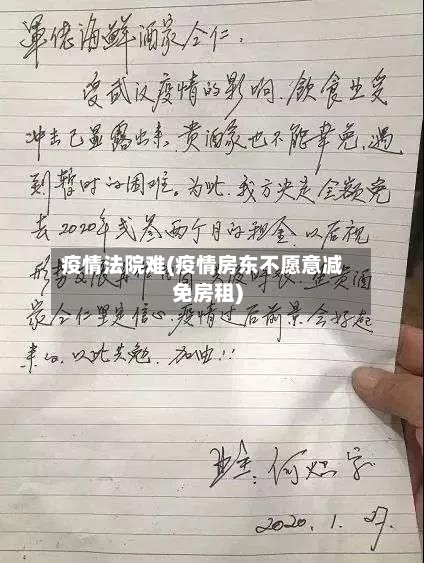 渾佬海鮮酒家仝仁:
受武汉疫情的影响,飲食业受
冲击已显露出来,贵酒家也不能幸免,遇
到暂时的困难。为此,我方决定全额免
去2020年弍、叁两个月的租金,以后视
疫情法院难(疫情房东不愿意减
免房租)
家仝仁坚定信心,疫情过后前景会好起
来的,以此共勉,加油!!
业主:何
2020.1.27.